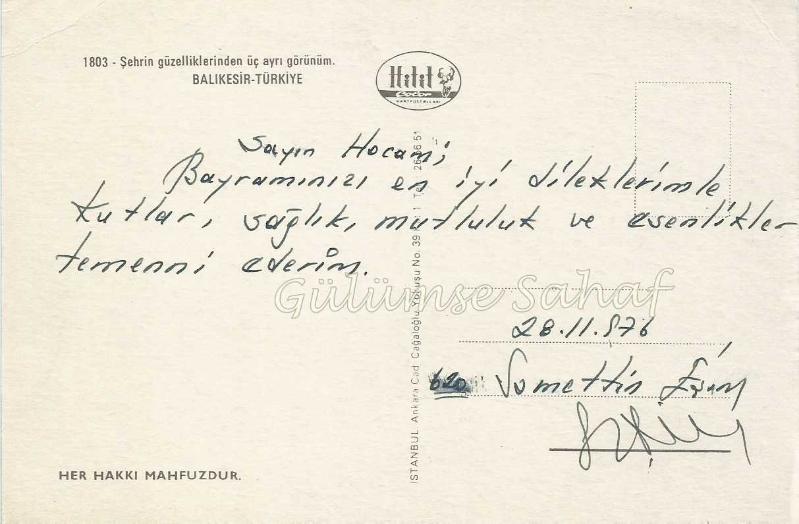 1803 - Şehrin güzelliklerinden üç ayrı görünüm.
BALIKESİR-TÜRKİYE
Hitit
Color
KARTPOSTALLARI
Sayın Hocam;
Bayramınızı en iyi dileklerimle
kutlar, sağlık, mutluluk ve esenlikler
temenni ederim.
Gülümse Sahaf
28.11.976
620
HER HAKKI MAHFUZDUR.
İSTANBUL Ankara Cad. Cağaloğlu Yokuşu No. 39